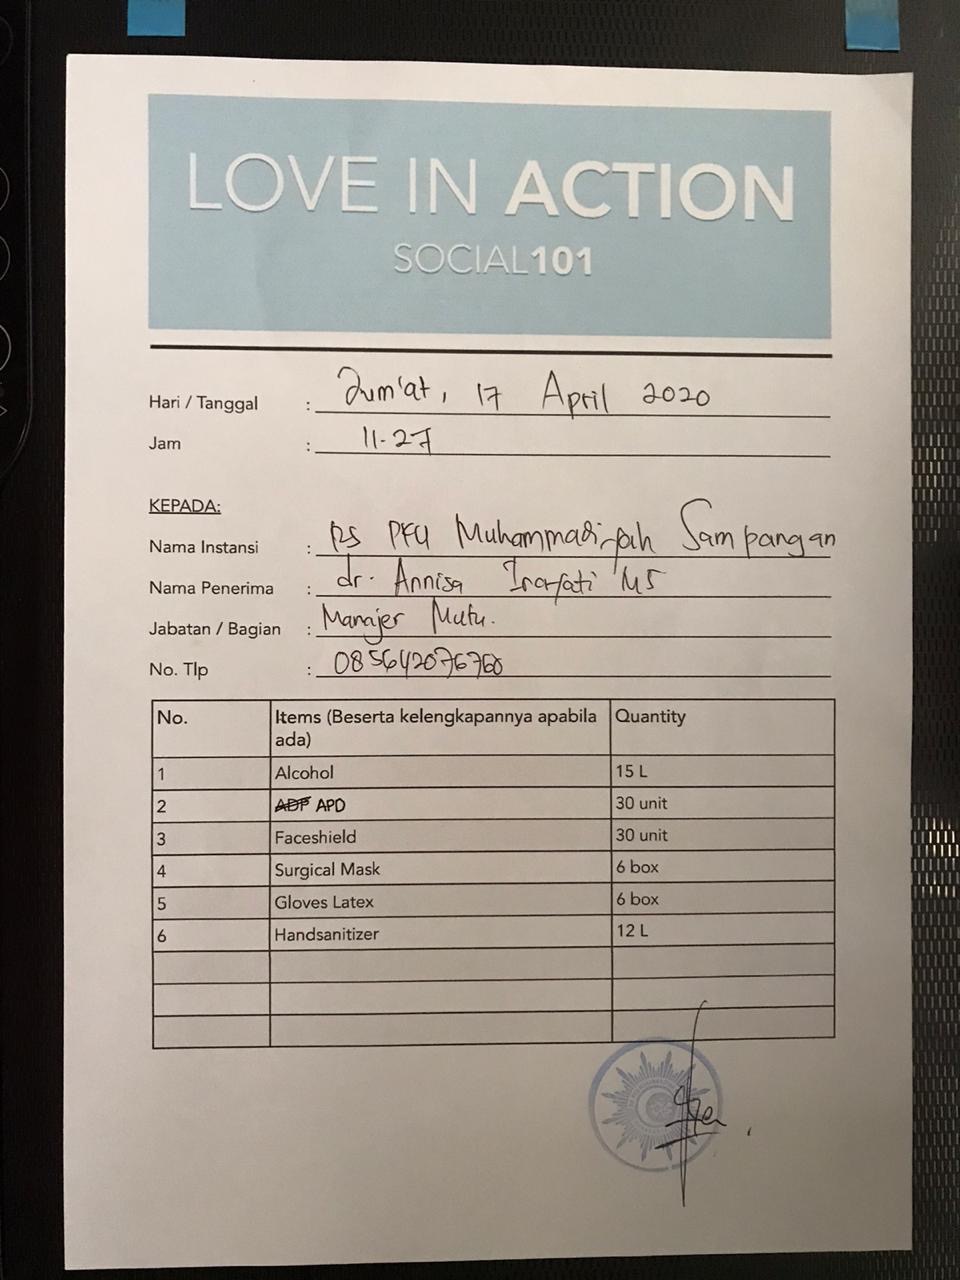 LOVE IN ACTION
SOCIAL101
Hari / Tanggal : Jum'at, 17 April 2020
Jam : 11-27
KEPADA:
Nama Instansi : RS PKU Muhammadiyah Sampangan
Nama Penerima : dr. Annisa
Jabatan / Bagian : Manajer Mutu.
No. Tlp : 085642076760
No. Items (Beserta kelengkapannya apabila ada) Quantity
1 Alcohol 15 L
2 ADP APD 30 unit
3 Faceshield 30 unit
4 Surgical Mask 6 box
5 Gloves Latex 6 box
6 Handsanitizer 12 L